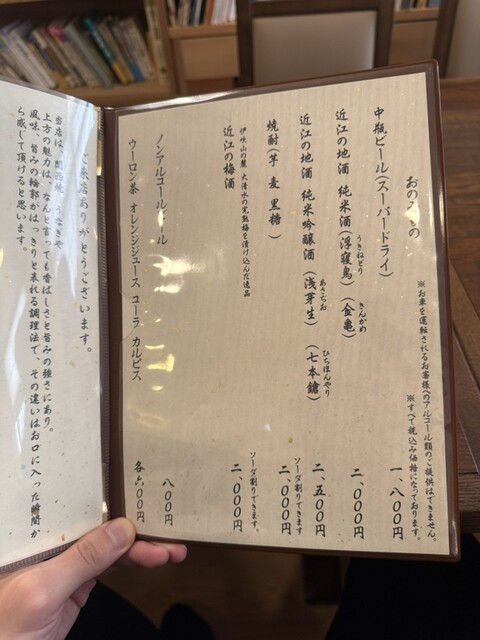 おのみもの
※お車を運転されるお客様へのアルコール類のご提供はできません。
※すべて税込み価格になっております。
中瓶ビール(スーパードライ) 一、八〇〇円
近江の地酒 純米酒(浮寝鳥)(金亀) 二、〇〇〇円
うきねどり きんかめ
近江の地酒 純米吟醸酒(浅芽生)(七本鎗) 二、五〇〇円
あさぢお ひちほんやり
焼酎(芋 麦 黒糖) 二、〇〇〇円
ソーダ割りできます
伊吹山の麓 大清水の完熟梅を漬け込んだ逸品
近江の梅酒 二、〇〇〇円
ソーダ割りできます。
ノンアルコールビール 八〇〇円
ウーロン茶 オレンジジュース コーラ カルピス 各六〇〇円
ご来店ありがとうございます。
当店は、関西焼 うなぎや
上方の魅力は、なんと言っても香ばしさと旨みの強さにあり。
風味、旨みの輪郭がはっきりと表れる調理法で、その違いはお口に入った瞬間か
ら感じて頂けると思います。